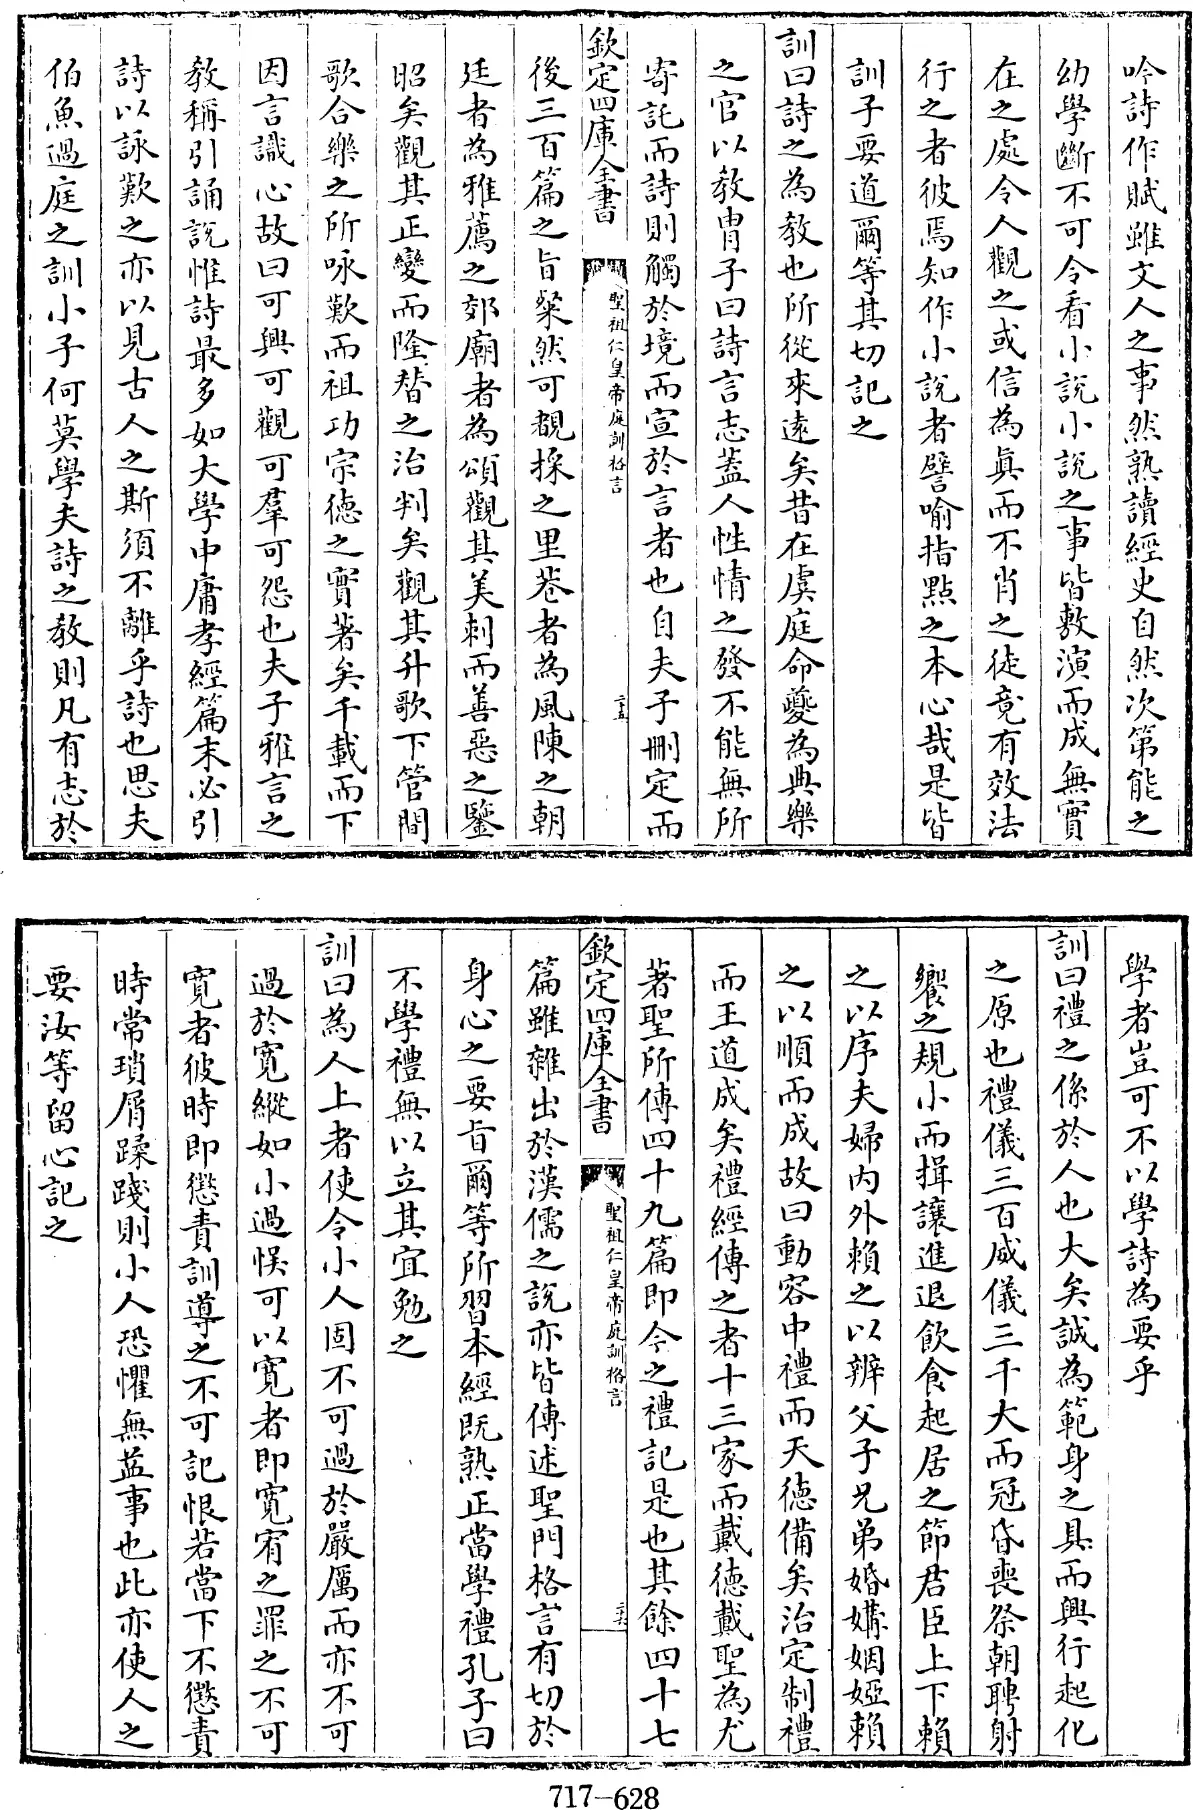 吟詩作賦雖文人之事然熟讀經史自然次第能之
幼學斷不可令看小說小說之事皆敷演而成無實
在之處令人觀之或信為真而不肖之徒竟有效法
行之者彼焉知作小說者譬喻指點之本心哉是皆
訓子要道爾等其切記之
訓曰詩之為教也所從來遠矣昔在虞庭命夔為典樂
之官以教胄子曰詩言志蓋人性情之發不能無所
寄託而詩則觸於境而宣於言者也自夫子刪定而
欽定四庫全書
聖祖仁皇帝庭訓格言
二十五
後三百篇之旨粲然可覩採之里巷者為風陳之朝
廷者為雅薦之郊廟者為頌觀其美刺而善惡之鑒
昭矣觀其正變而隆替之治判矣觀其升歌下管間
歌合樂之所咏歎而祖功宗德之實著矣千載而下
因言識心故曰可興可觀可羣可怨也夫子雅言之
教稱引誦說惟詩最多如大學中庸孝經篇末必引
詩以詠歎之亦以見古人之斯須不離乎詩也思夫
伯魚過庭之訓小子何莫學夫詩之教則凡有志於
學者豈可不以學詩為要乎
訓曰禮之係於人也大矣誠為範身之具而興行起化
之原也禮儀三百威儀三千大而冠昏喪祭朝聘射
饗之規小而揖讓進退飲食起居之節君臣上下賴
之以序夫婦內外賴之以辨父子兄弟婚媾姻婭賴
之以順而成故曰動容中禮而天德備矣治定制禮
而王道成矣禮經傳之者十三家而戴德戴聖為尤
著聖所傳四十九篇即今之禮記是也其餘四十七
欽定四庫全書
聖祖仁皇帝庭訓格言
二十六
篇雖雜出於漢儒之說亦皆傳述聖門格言有切於
身心之要旨爾等所習本經既熟正當學禮孔子曰
不學禮無以立其宜勉之
訓曰為人上者使令小人固不可過於嚴厲而亦不可
過於寬縱如小過悞可以寬者即寬宥之罪之不可
寬者彼時即懲責訓導之不可記恨若當下不懲責
時常瑣屑蹂踐則小人恐懼無益事也此亦使人之
要汝等留心記之
717-628